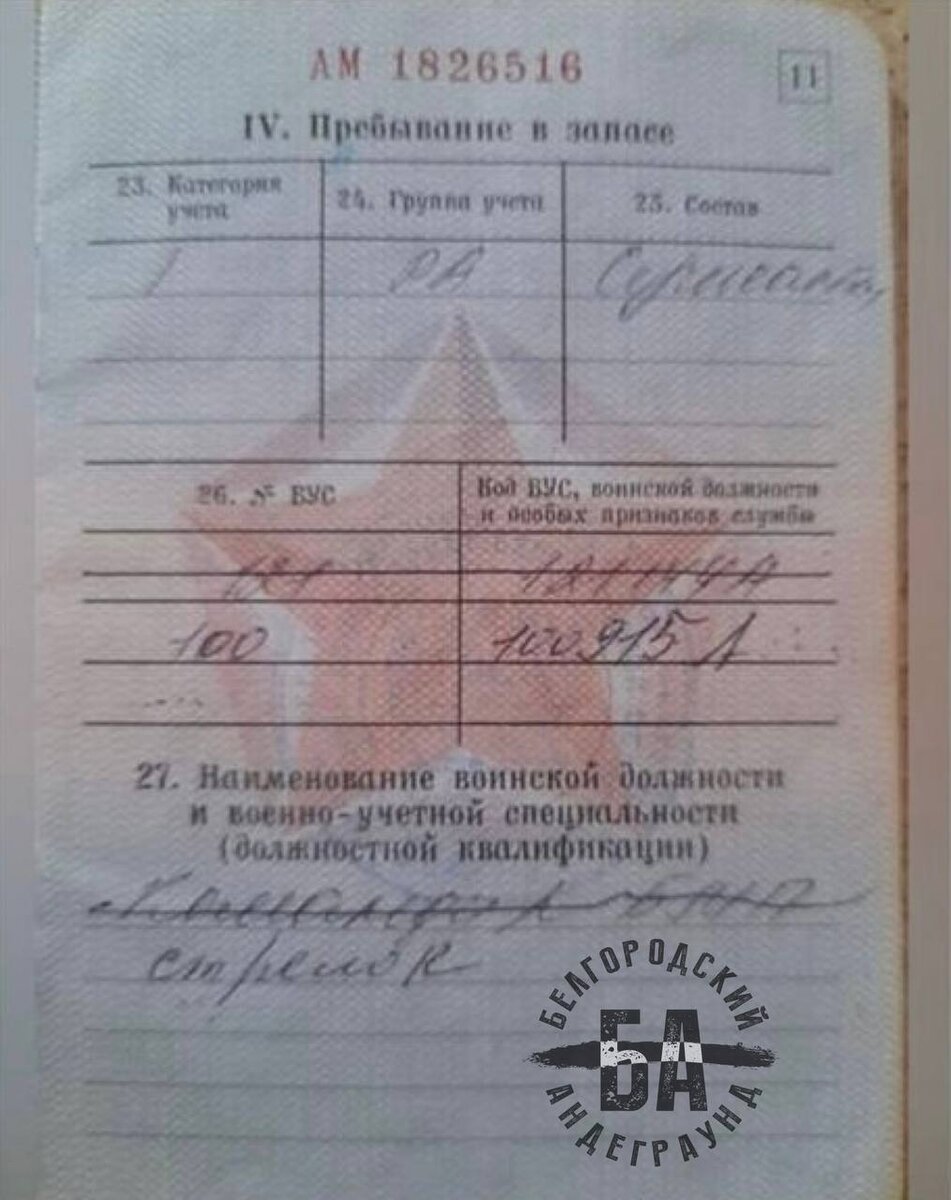 АМ 1826516
11
IV. Пребывание в запасе
23. Категория учета
24. Группа учета
25. Состав
1
РА
26. № ВУС
Код ВУС, воинской должности
и особых признаков службы
121
100
100915 Л
27. Наименование воинской должности
и военно-учетной специальности
(должностной квалификации)
стрелок
БЕЛГОРОДСКИЙ
БА
АНДЕГРАУНД